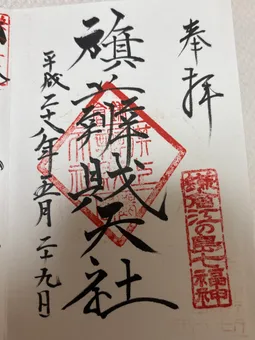 奉拝
鎌倉江の島七福神
旗上辨財天社
平成二十八年五月二十九日